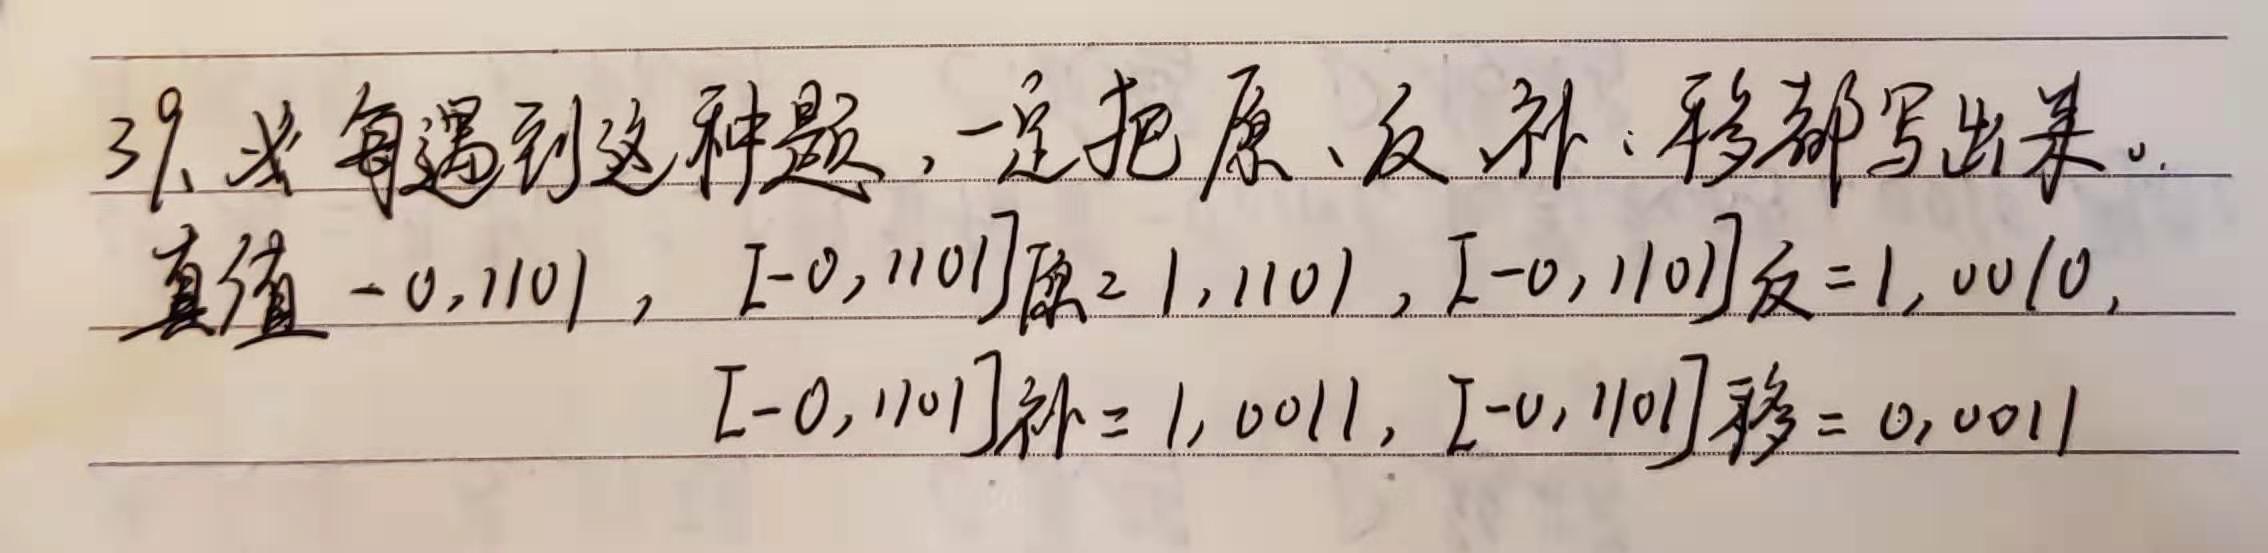 39、必每遇到这种题,一定把原、反、补、移都写出来。
真值 -0,1101, [-0,1101]原=1,1101, [-0,1101]反=1,0010,
[-0,1101]补=1,0011, [-0,1101]移=0,0011